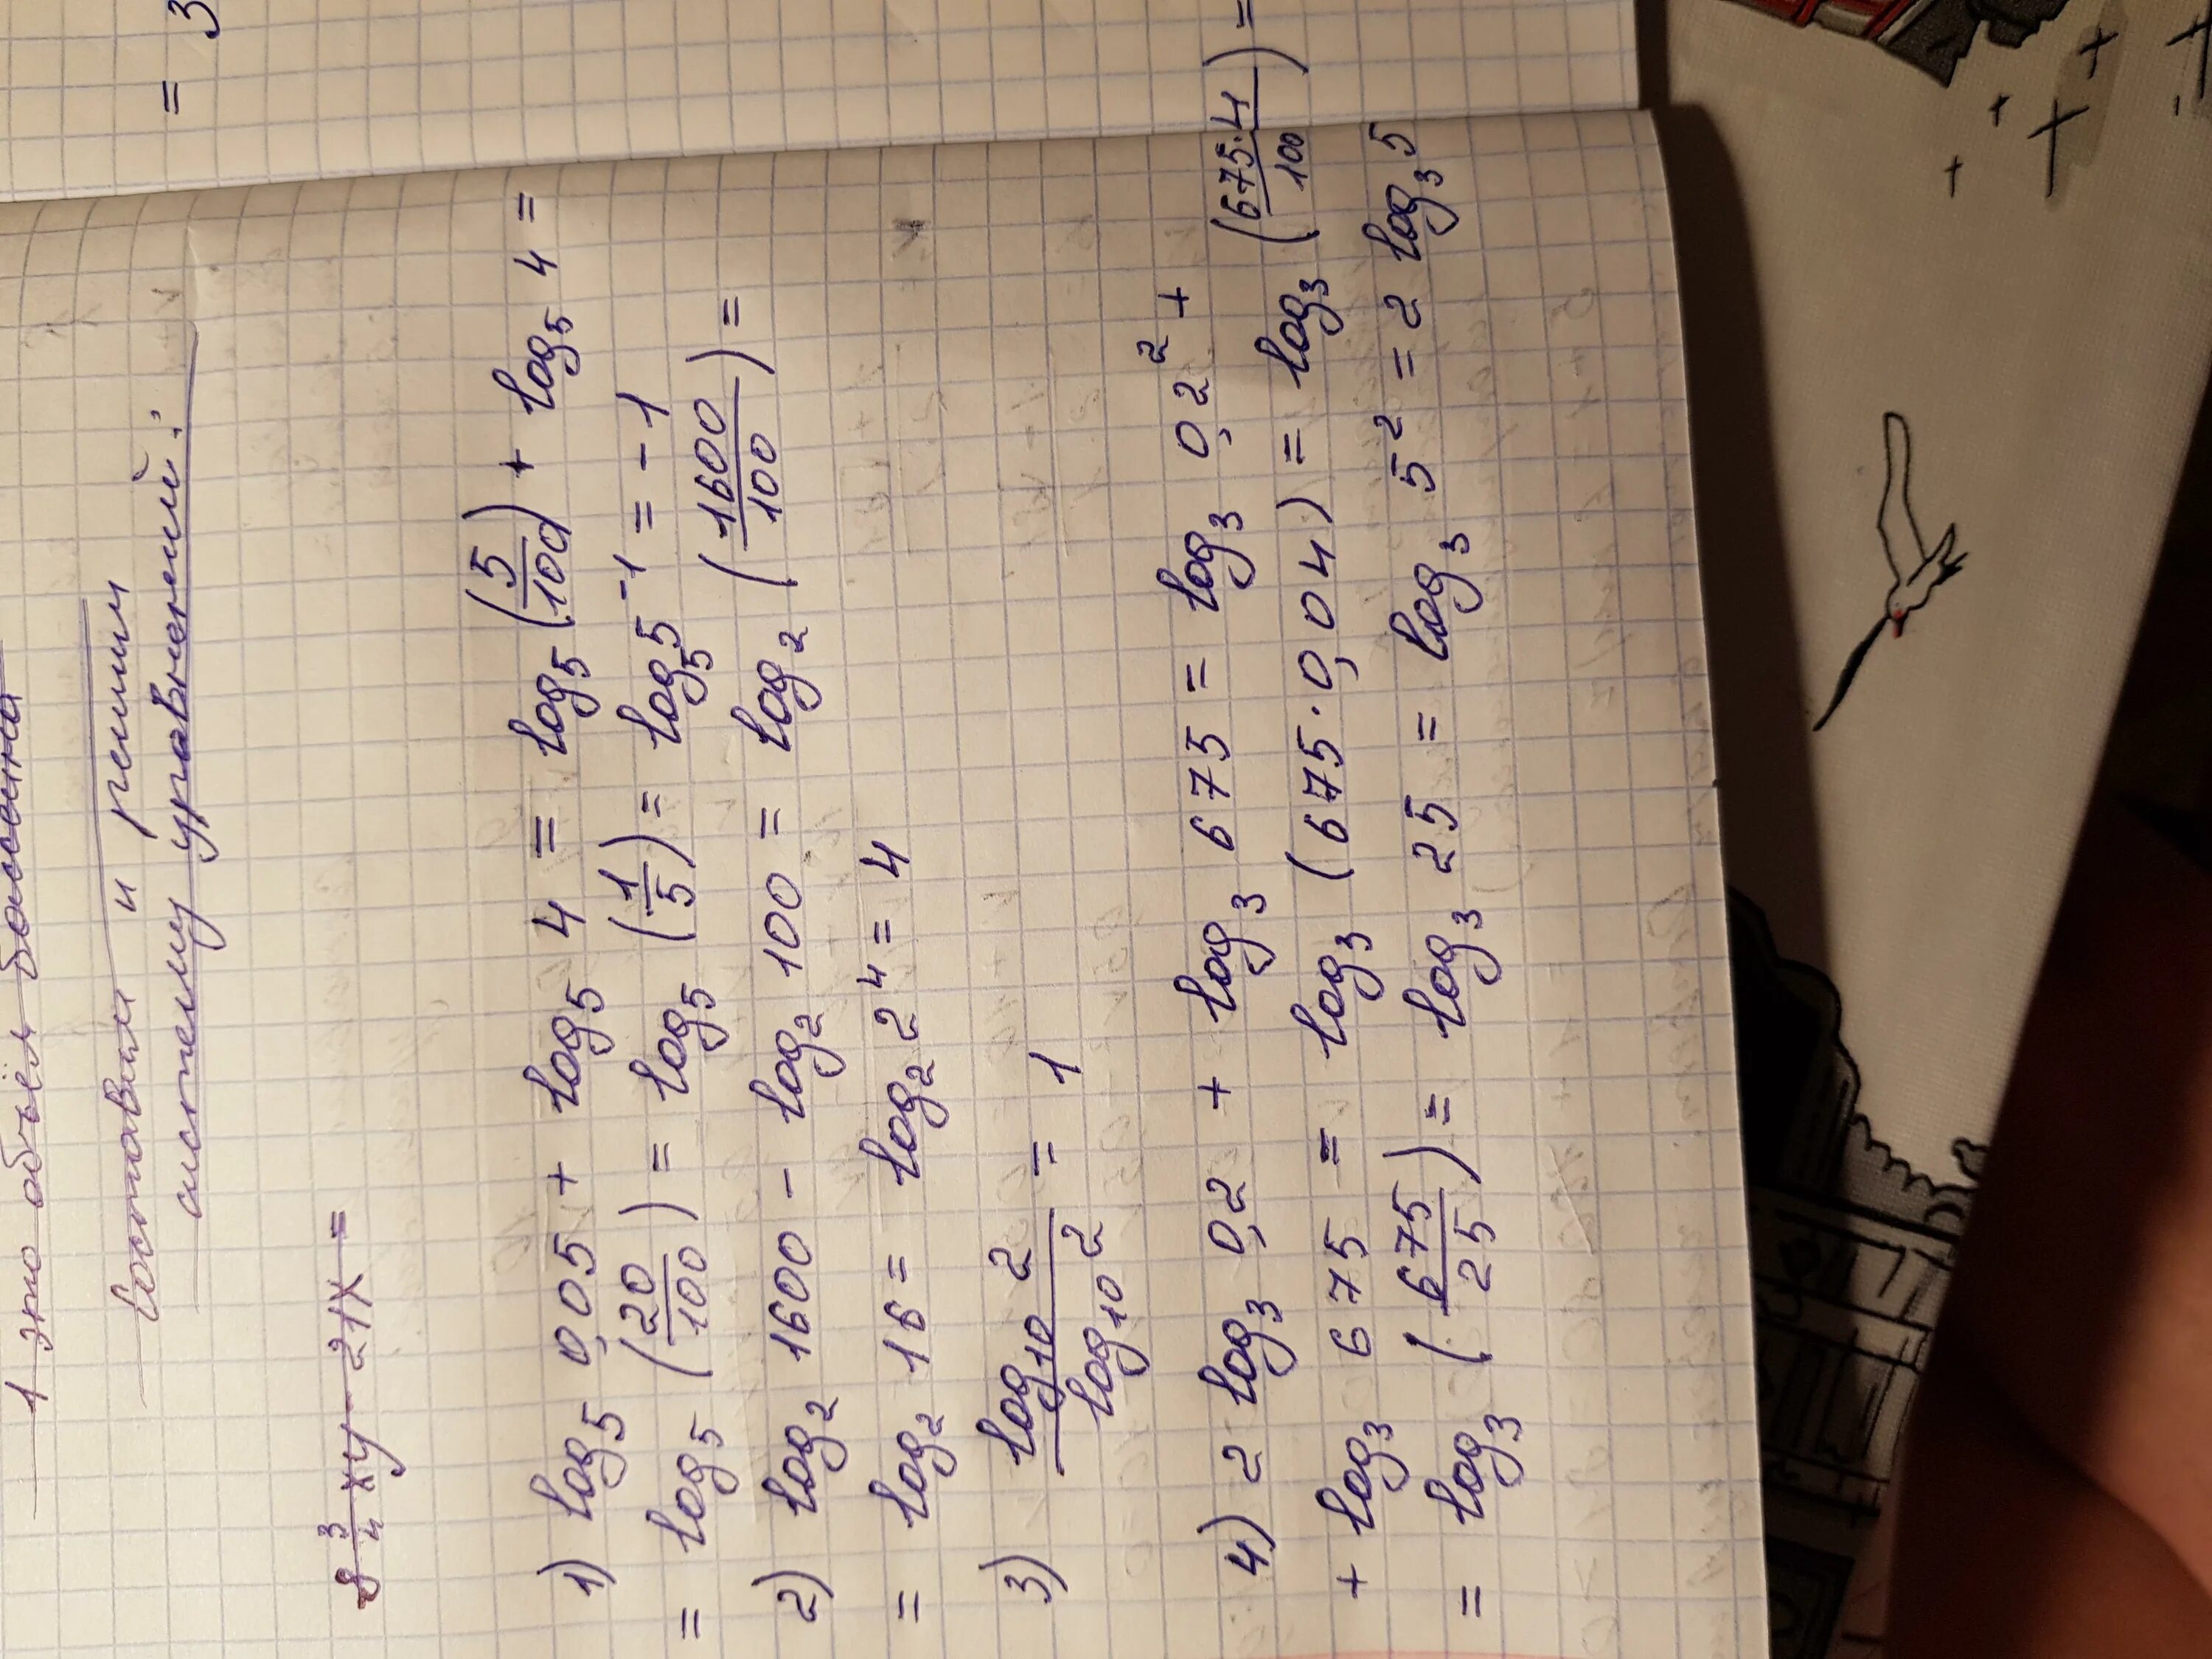 = 3
1 это объём
составим и решим
систему уравнений:
8 3/4 xy - 21x =
1) log₅ 0,05 + log₅ 4 = log₅ (5/100) + log₅ 4 =
= log₅ (20/100) = log₅ (1/5) = log₅ 5⁻¹ = -1
2) log₂ 1600 - log₂ 100 = log₂ (1600/100) =
= log₂ 16 = log₂ 2⁴ = 4
3) log₁₀ 2 / log₁₀ 2 = 1
4) 2 log₃ 0,2 + log₃ 675 = log₃ 0,2² +
+ log₃ 675 = log₃ (675·0,04) = log₃ (675·4/100) =
= log₃ (675/25) = log₃ 25 = log₃ 5² = 2 log₃ 5